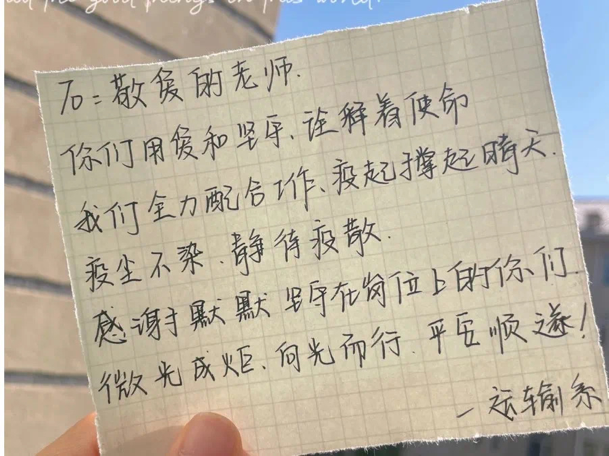 all the good things in this world.
To=敬爱的老师.
你们用爱和坚守、诠释着使命
我们全力配合工作、疫起撑起晴天.
疫尘不染.静待疫散.
感谢于默默坚守在岗位上的你们.
微光成炬.向光而行.平安顺遂!
—运输系